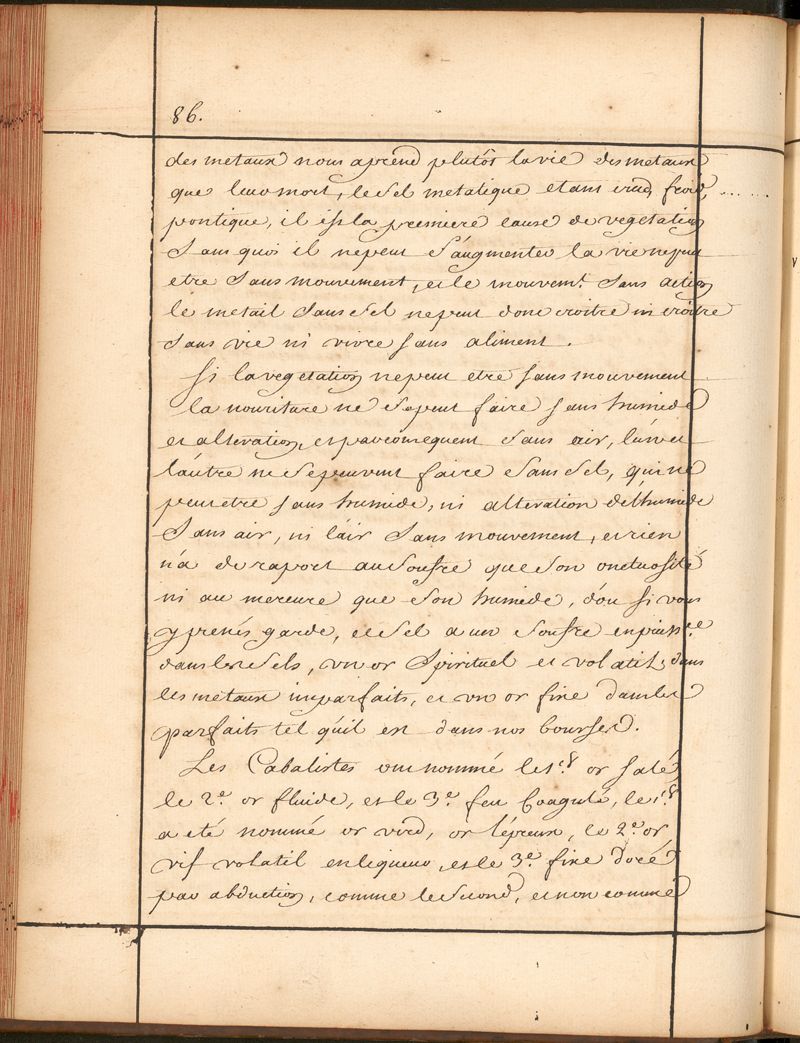 86.
des metaux nous aprend plutôt la vie des metaux
que leur mort, le Sel metalique etant crud, froid,
pontique, il est la premiere cause de vegetation
Sans quoi il ne peut S'augmenter la vie ne peut
etre Sans mouvement, et le mouvemt. Sans action
le metail Sans Sel ne peut donc croitre ni croitre
Sans vie ni vivre Sans aliment.
Si la vegetation ne peut etre Sans mouvement
la nouriture ne Se peut faire Sans humide
et alteration, et par consequent Sans air, l'un et
l'autre ne Se peuvent faire Sans Sel, qui ne
peut etre Sans humide, ni alteration de l'humide
Sans air, ni l'air Sans mouvement, et rien
n'a de raport au Soufre que Son onctuosité
ni au mercure que Son humide, d'ou Si vous
y prenés garde, le Sel a un Soufre en puissce.
dans les Sels, un or Spirituel et volatil dans
les metaux imparfaits, et un or fixe dans les
parfaits tel qu'il est dans nos bourses.
Les Cabalistes ont nommé le 1er. or Salé,
le 2e. or fluide, et le 3e. feu Coagulé, le 1er.
a eté nommé or verd, or lépreux, le 2e. or
vif volatil en liqueur, et le 3e. fixe doré
par abduction, comme le Second, et non comme